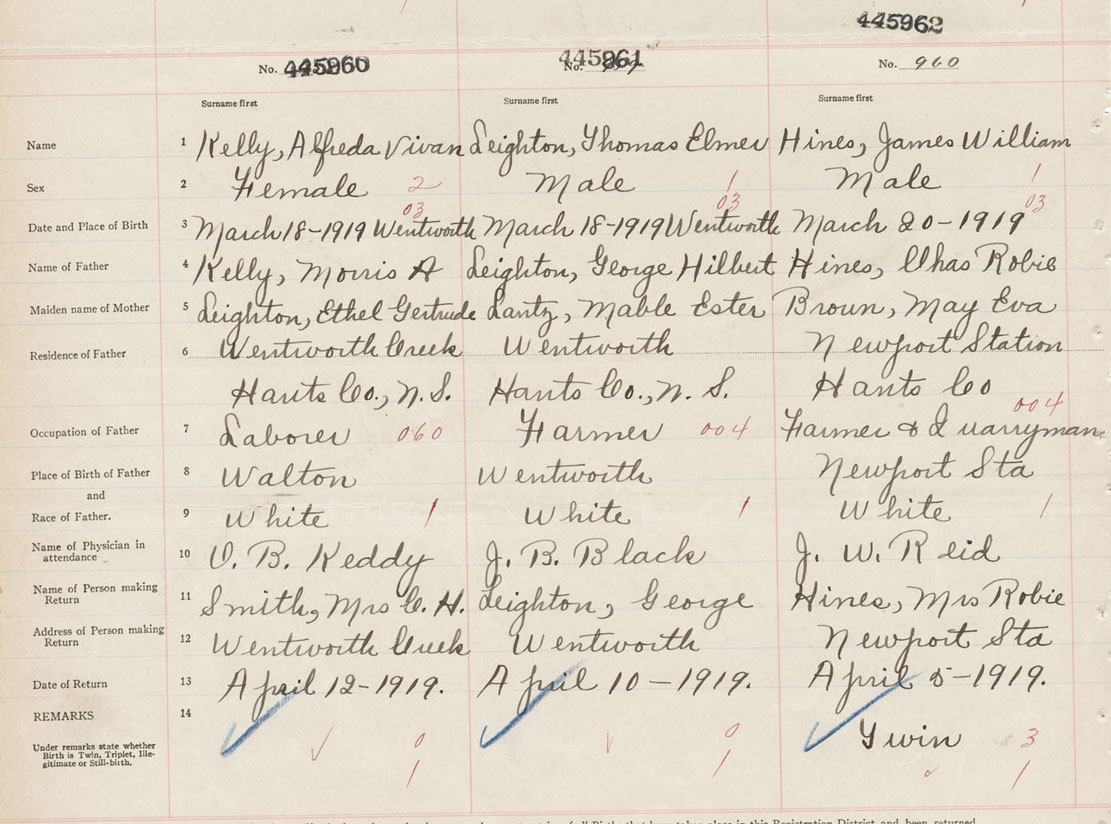 445962
No. 445960
445961
No.
No. 960
Surname first
Surname first
Surname first
Name 1 Kelly, Alfreda Vivan Leighton, Thomas Elmer Hines, James William
Sex 2 Female 2 Male 1 Male 1
03 03 03
Date and Place of Birth 3 March 18-1919 Wentworth March 18-1919 Wentworth March 20-1919
Name of Father 4 Kelly, Morris A Leighton, George Hilbert Hines, Chas Robie
Maiden name of Mother 5 Leighton, Ethel Gertrude Lantz, Mable Ester Brown, May Eva
Residence of Father 6 Wentworth Creek Wentworth Newport Station
Hants Co., N.S. Hants Co., N.S. Hants Co
004
Occupation of Father 7 Laborer 060 Farmer 004 Farmer & Quarryman
Place of Birth of Father 8 Walton Wentworth Newport Sta
and
Race of Father. 9 White 1 White 1 White 1
Name of Physician in
attendance 10 O. B. Keddy J. B. Black J. W. Reid
Name of Person making
Return 11 Smith, Mrs C. H. Leighton, George Hines, Mrs Robie
Address of Person making
Return 12 Wentworth Creek Wentworth Newport Sta
Date of Return 13 April 12-1919. April 10-1919. April 5-1919.
REMARKS 14
Under remarks state whether
Birth is Twin, Triplet, Ille-
gitimate or Still-birth.
0 0 Twin 3
1 1 1